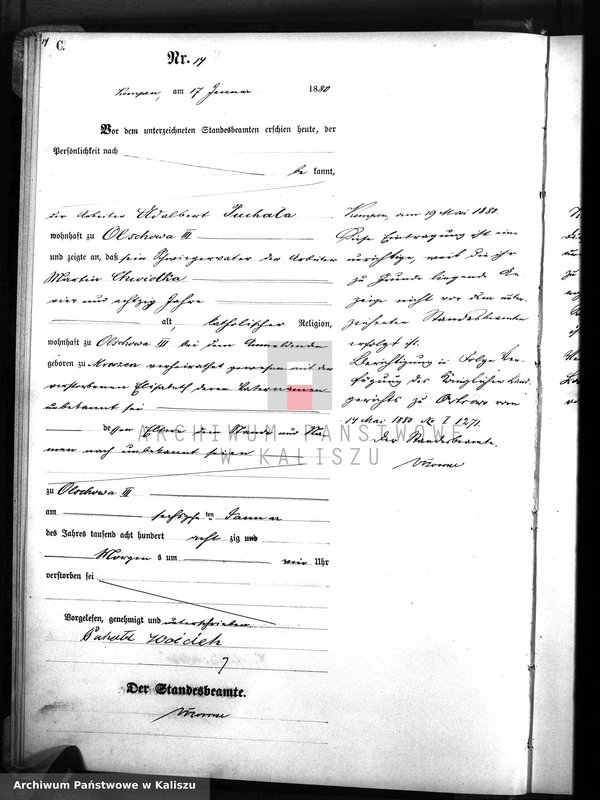 C.
Nr. 14
Kempen, am 17 Januar 1880
Vor dem unterzeichneten Standesbeamten erschien heute, der
Persönlichkeit nach
be kannt,
der Arbeiter Adalbert Puchala
wohnhaft zu Olschowa III
und zeigte an, daß sein Schwiegervater der Arbeiter
Martin
vier und achtzig Jahre
alt, katholischer Religion,
wohnhaft zu Olschowa III bei dem Anmeldenden
geboren zu Mroczen verheirathet gewesen mit der
verstorbenen Elisabeth deren Vatersnamen
unbekannt sei
dessen Eltern dem Stande und Na
men nach unbekannt seien
zu Olschowa III
am sechszehnten Januar
des Jahres tausend acht hundert acht zig und
Morgens um vier Uhr
verstorben sei
Vorgelesen, genehmigt und unterschrieben
Der Standesbeamte.
Kempen, am 19 Mai 1880.
Diese Eintragung ist eine
unrichtige, weil die ihr
zu Grunde liegende An
zeige nicht vor dem unter
zeichneten Standesbeamten
erfolgt ist.
Berichtigung in Folge Ver
fügung des Königlichen Land
gerichts zu Ostrowo vom
14 Mai 1880 No I 1271.
Der Standesbeamte.
ARCHIWUM PAŃSTWOWE
W KALISZU
Archiwum Państwowe w Kaliszu